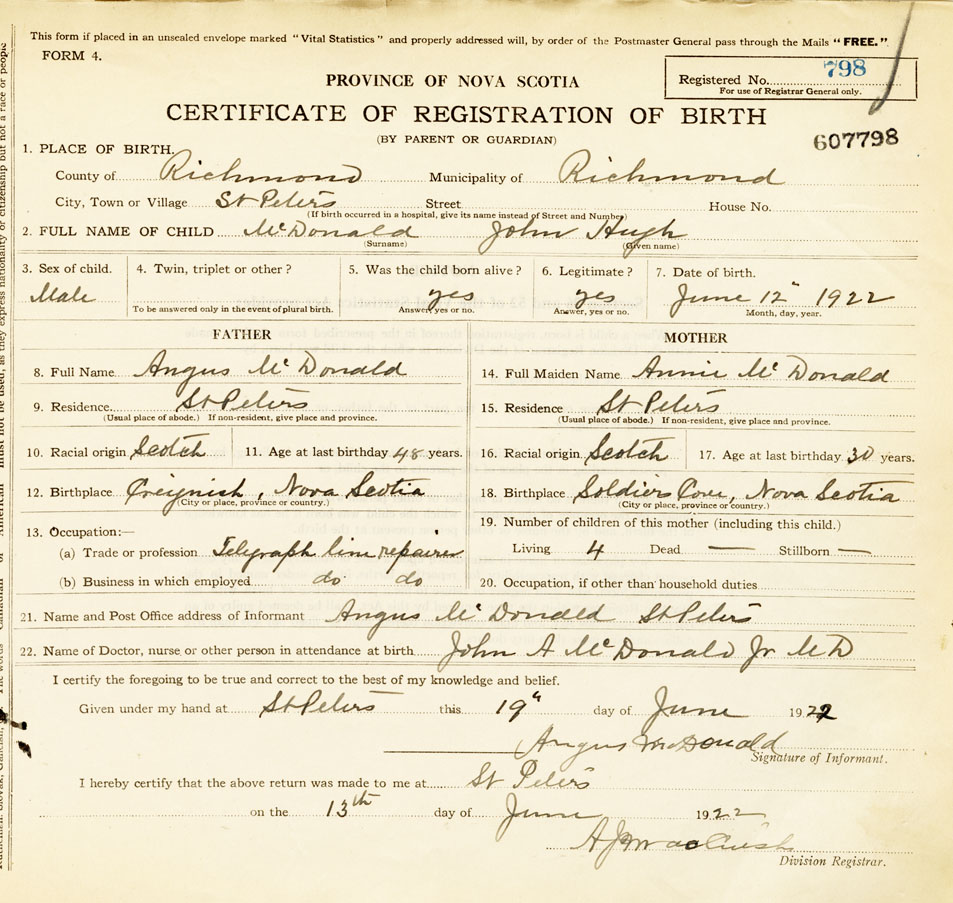 This form if placed in an unsealed envelope marked "Vital Statistics" and properly addressed will, by order of the Postmaster General pass through the Mails "FREE."
FORM 4.
PROVINCE OF NOVA SCOTIA
Registered No. 798
For use of Registrar General only.
CERTIFICATE OF REGISTRATION OF BIRTH
(BY PARENT OR GUARDIAN)
607798
1. PLACE OF BIRTH.
County of Richmond Municipality of Richmond
City, Town or Village St Peters Street House No.
(If birth occurred in a hospital, give its name instead of Street and Number)
2. FULL NAME OF CHILD McDonald John Hugh
(Surname) (Given name)
3. Sex of child. 4. Twin, triplet or other? 5. Was the child born alive? 6. Legitimate? 7. Date of birth.
Male yes yes June 12" 1922
To be answered only in the event of plural birth. Answer, yes or no. Answer, yes or no. Month, day, year.
FATHER
8. Full Name Angus McDonald
9. Residence. St Peters
(Usual place of abode.) If non-resident, give place and province.
10. Racial origin Scotch 11. Age at last birthday 48 years.
12. Birthplace Creignish, Nova Scotia
(City or place, province or country.)
13. Occupation:—
(a) Trade or profession Telegraph line repairer
(b) Business in which employed do do
MOTHER
14. Full Maiden Name Annie McDonald
15. Residence St Peters
(Usual place of abode.) If non-resident, give place and province.
16. Racial origin Scotch 17. Age at last birthday 30 years.
18. Birthplace Soldiers Cove, Nova Scotia
(City or place, province or country.)
19. Number of children of this mother (including this child.)
Living 4 Dead — Stillborn —
20. Occupation, if other than household duties
21. Name and Post Office address of Informant Angus McDonald St Peters
22. Name of Doctor, nurse or other person in attendance at birth John A McDonald Jr MD
I certify the foregoing to be true and correct to the best of my knowledge and belief.
Given under my hand at St Peters this 19" day of June 1922
Angus McDonald
Signature of Informant.
I hereby certify that the above return was made to me at St Peters
on the 13th day of June 1922
Division Registrar.